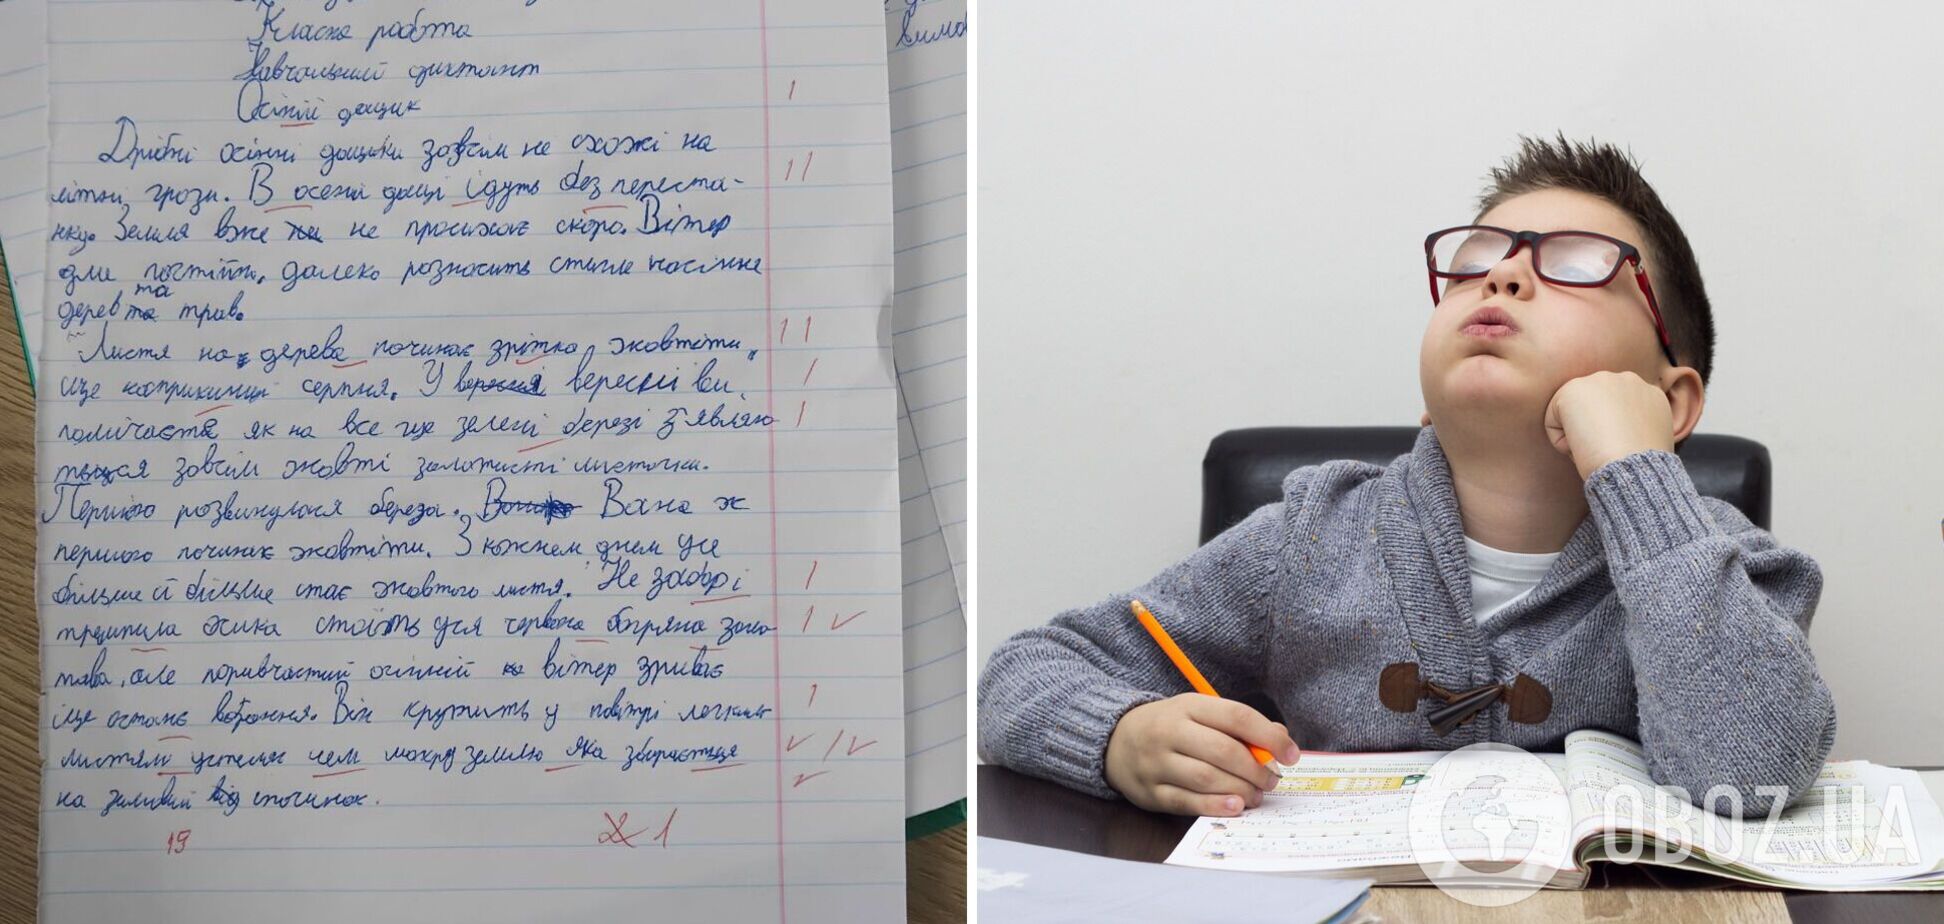 Класна робота
Навчальний диктант
Осіній дощик
1
Дрібні осінні дощики зовсім не схожі на
літні грози. В осени дощі ідуть без переста-
11
нку. Земля вже не просихає скоро. Вітер
дме постійно, далеко розносить стигле насіння
дерев та трав.
Листя на дерева починає зрітка жовтіти,
11
ще наприкинці серпня. У вересні ви
1
помічаєте як на все ще зелені березі з'являю
1
ться зовсім жовті золотисті листочки.
Першою розвинулася береза. Вона ж
першою починає жовтіти. З кожнем днем усе
більше й більше стає жовтого листя. Не забарі
1
стоїть уся червона багряна золо
1
тава, але поривчастий осінній вітер зриває
ще останє вбрання. Він крутить у повітрі легким
1
листям чем мокру землю яка збираєтця
на зимовий спочинок.
19
1
OBOZ.UA